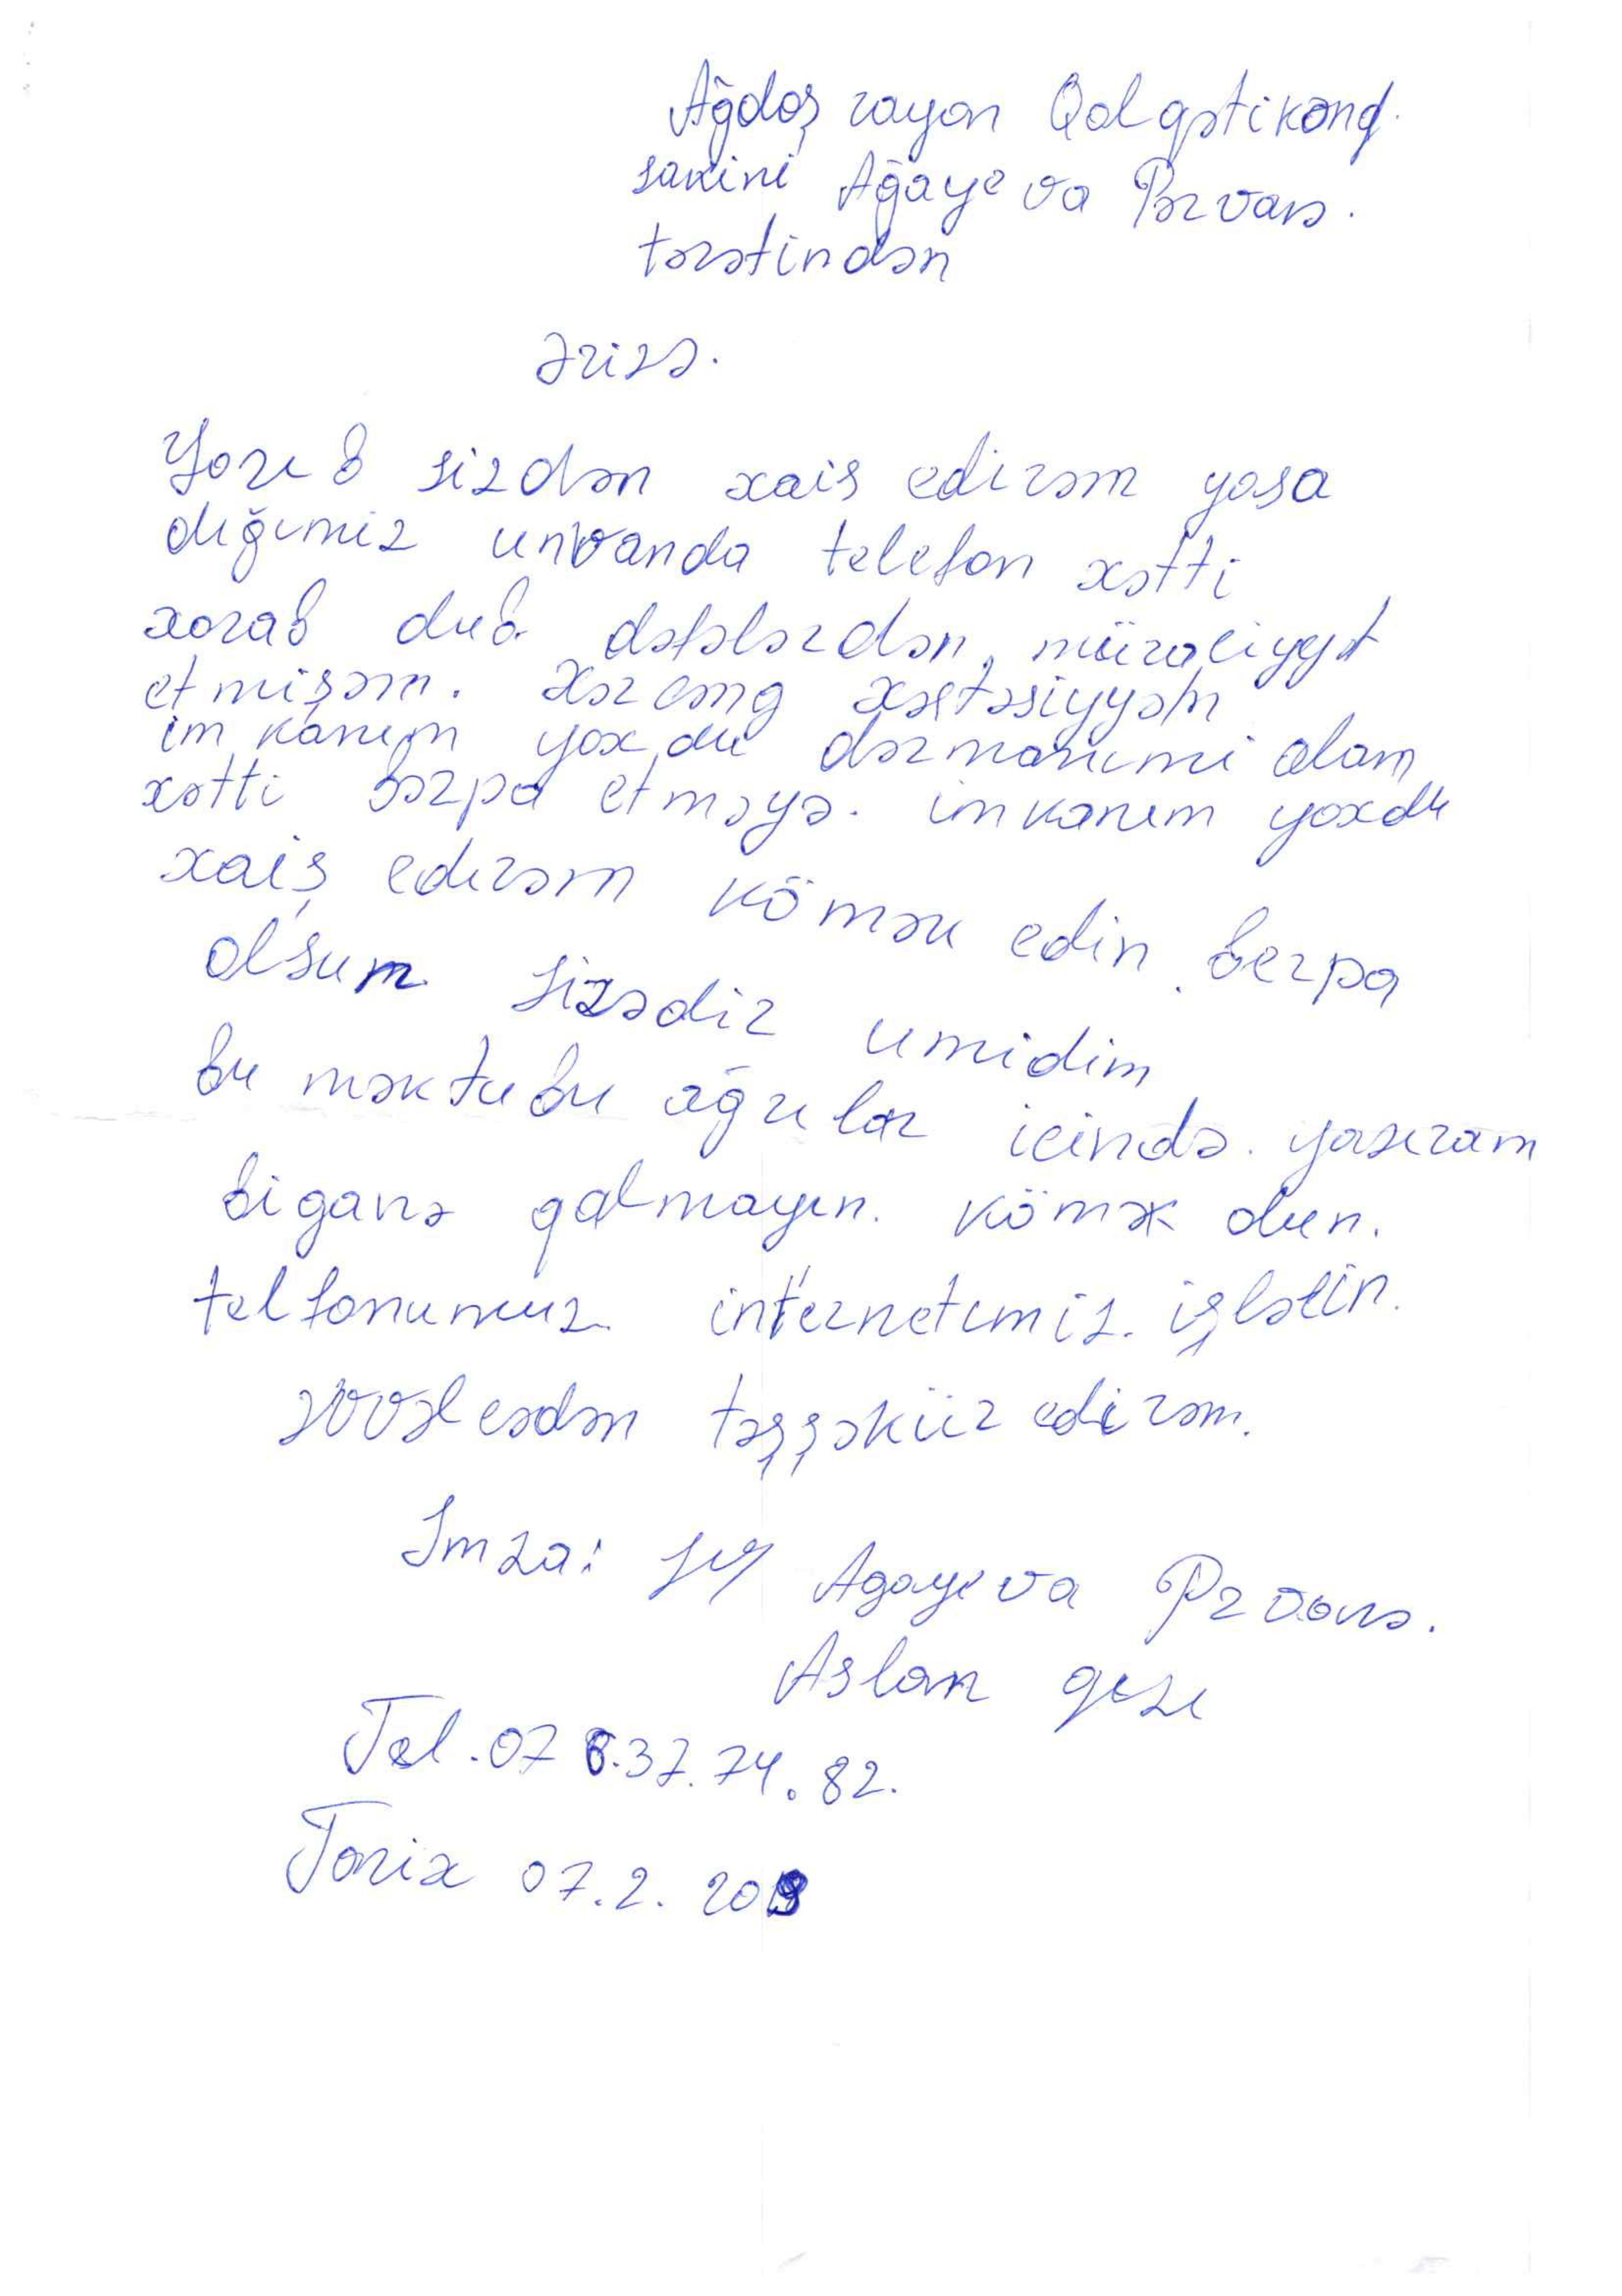 Ağdaş rayon Qolqəti kənd.
sakini Ağayeva Pərvanə.
tərəfindən
Əriza.
Yazıb sizdən xaiş edirəm yaşa
dığımız unvanda telefon xətti
xarab dıb. dəfələrdən müraciyyət
etmişəm. Xərcəng xəstəsiyyəm
imkanım yoxdu dərmanımi alam
xətti bərpa etməyə. imkanım yoxdu
xaiş edirəm kömək edin. berpa
olsum. sizədir umidim
bu məktubu ağrılar icində. yazıram
biganə qalmayın. kömək dın.
telfonumuz internetimiz. işləsin.
əvvəlcədən təşşəkür edirəm.
Imza: Agayeva Prvanə.
Aslan qızı
Tel. 07 6.37.74.82.
Tarix 07.2. 2019